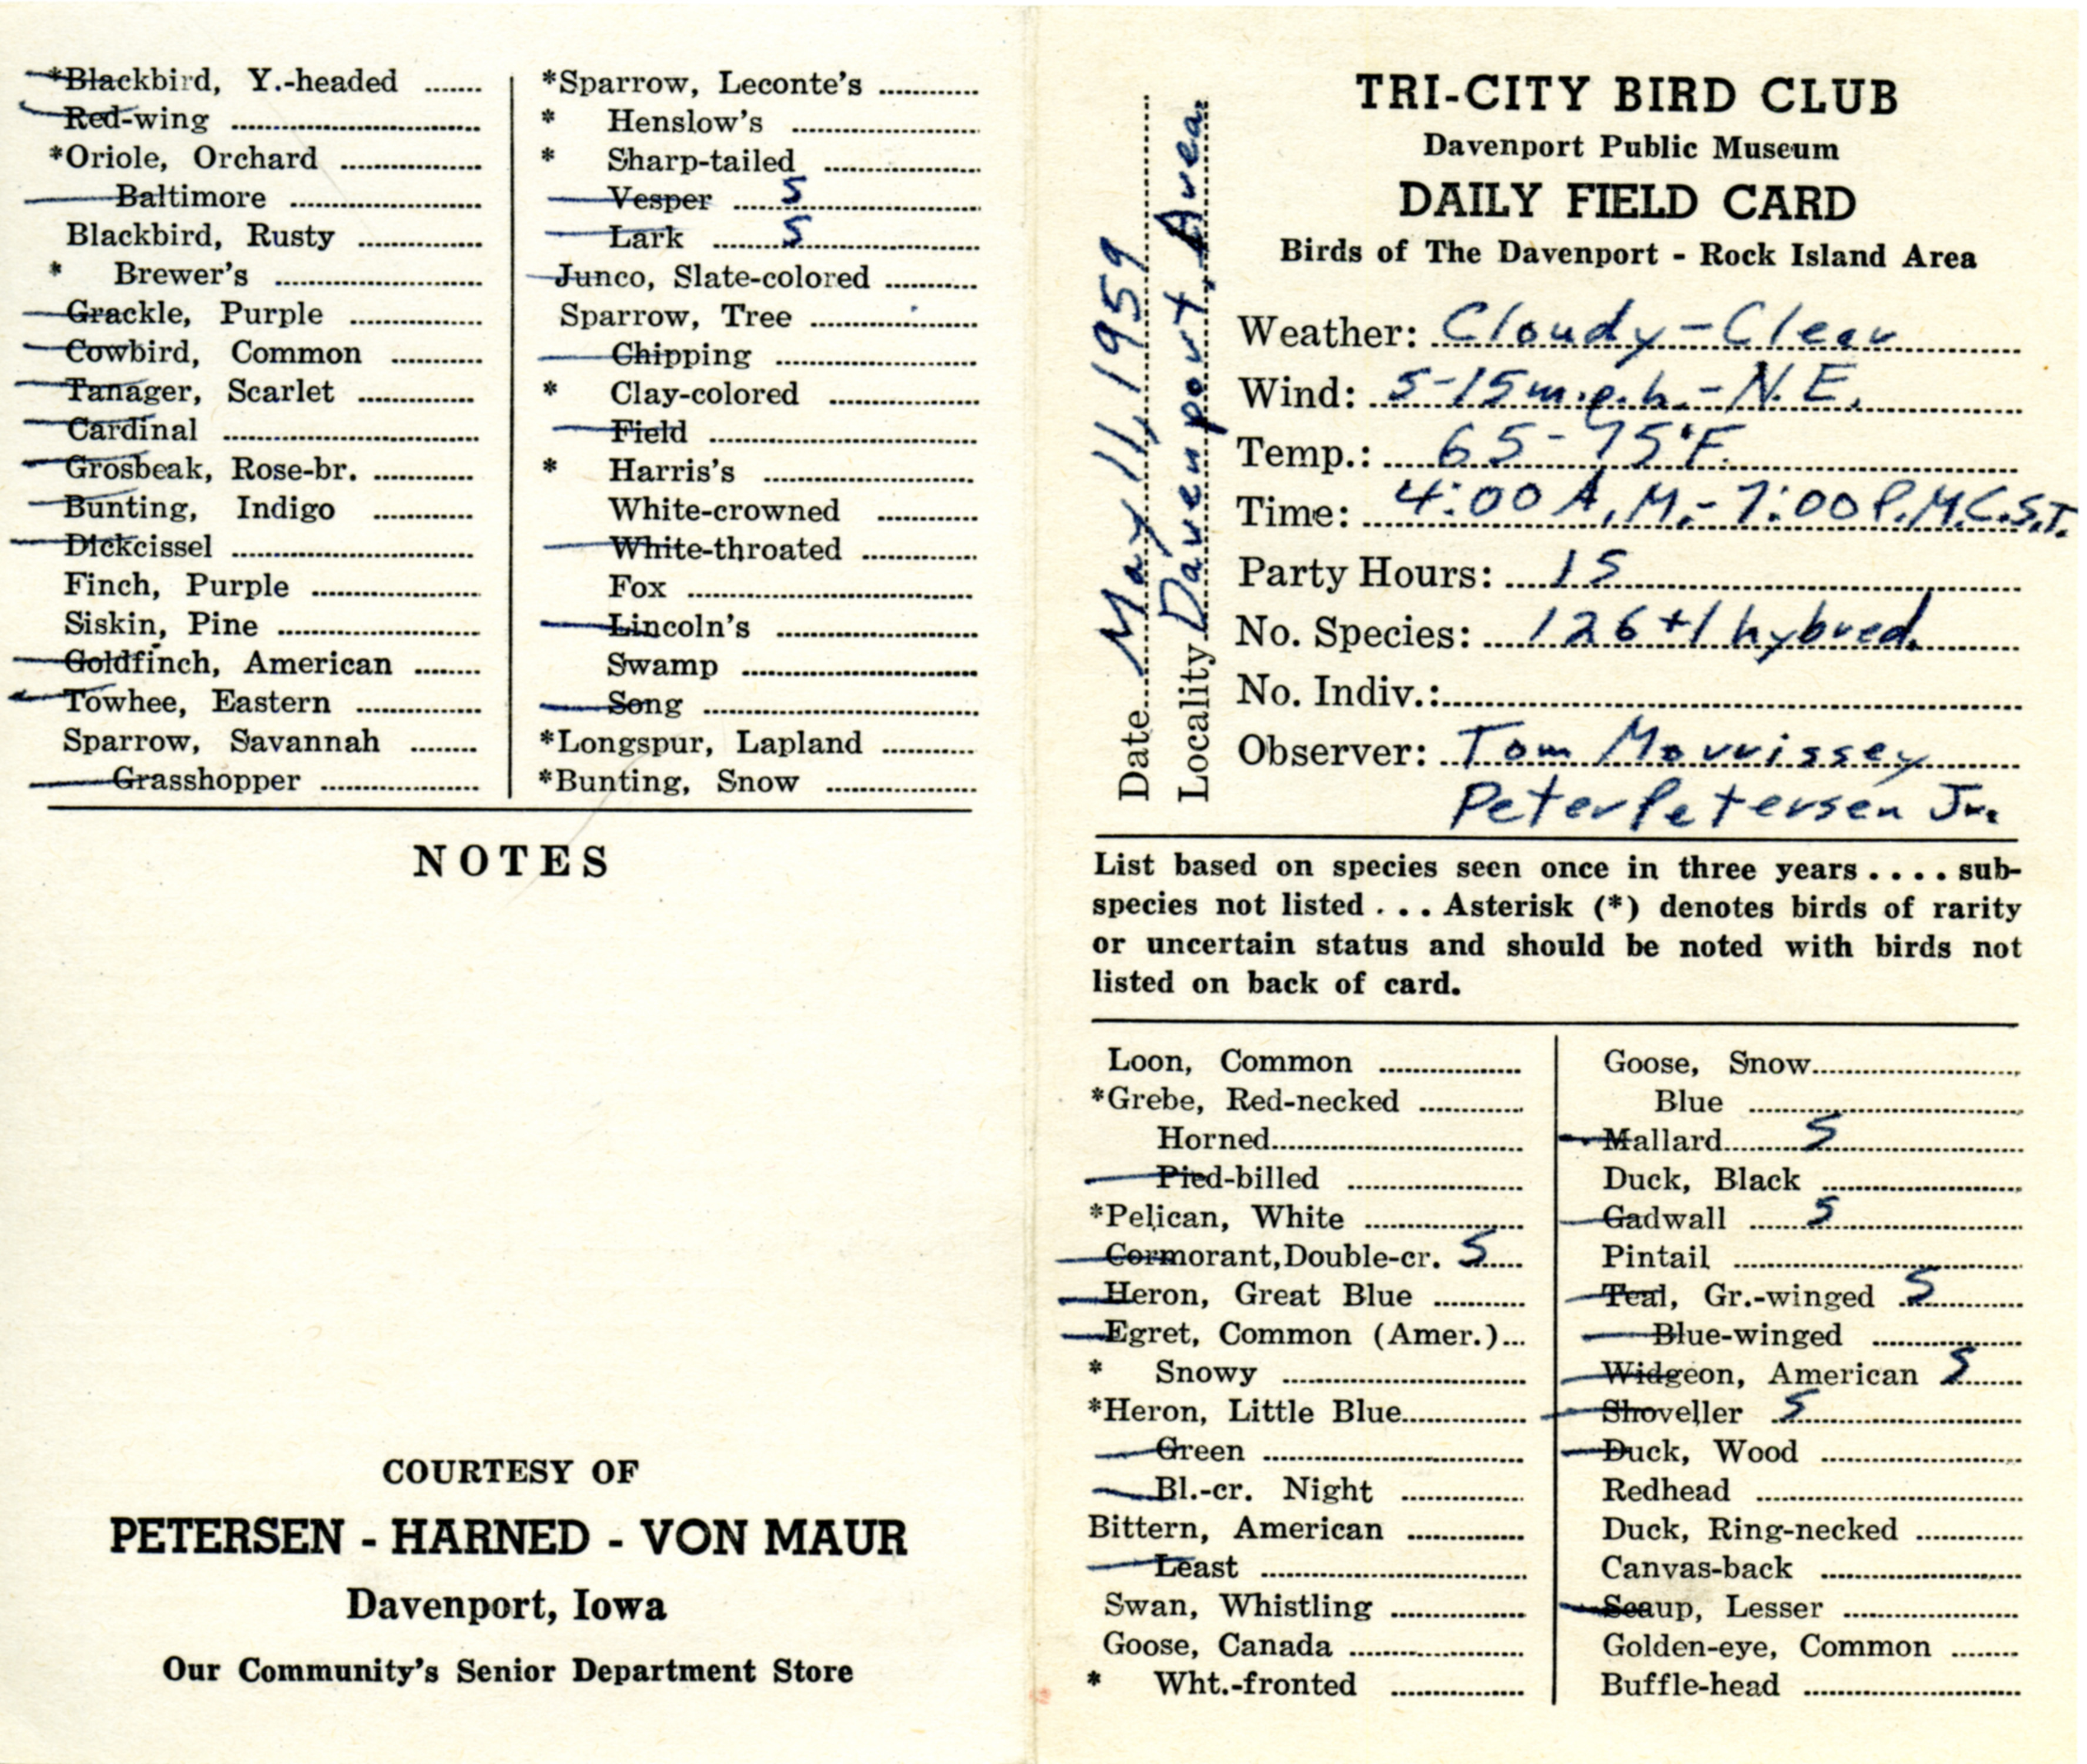 *Blackbird, Y.-headed
Red-wing
*Oriole, Orchard
Baltimore
Blackbird, Rusty
* Brewer's
Grackle, Purple
Cowbird, Common
Tanager, Scarlet
Cardinal
Grosbeak, Rose-br.
Bunting, Indigo
Dickcissel
Finch, Purple
Siskin, Pine
Goldfinch, American
Towhee, Eastern
Sparrow, Savannah
Grasshopper
*Sparrow, Leconte's
* Henslow's
* Sharp-tailed
Vesper 5
Lark 5
Junco, Slate-colored
Sparrow, Tree
Chipping
* Clay-colored
Field
* Harris's
White-crowned
White-throated
Fox
Lincoln's
Swamp
Song
*Longspur, Lapland
*Bunting, Snow
NOTES
COURTESY OF
PETERSEN - HARNED - VON MAUR
Davenport, Iowa
Our Community's Senior Department Store
Date May 11, 1959
Locality Davenport Area
TRI-CITY BIRD CLUB
Davenport Public Museum
DAILY FIELD CARD
Birds of The Davenport - Rock Island Area
Weather: Cloudy-Clear
Wind: 5-15 m.p.h.-N.E.
Temp.: 65-75°F.
Time: 4:00 A.M.-7:00 P.M.C.S.T.
Party Hours: 15
No. Species: 126+1 hybred.
No. Indiv.:
Observer: Tom Morrissey
Peter Petersen Jr.
List based on species seen once in three years . . . . sub-
species not listed . . . Asterisk (*) denotes birds of rarity
or uncertain status and should be noted with birds not
listed on back of card.
Loon, Common
*Grebe, Red-necked
Horned
Pied-billed
*Pelican, White
Cormorant, Double-cr. 5
Heron, Great Blue
Egret, Common (Amer.)
* Snowy
*Heron, Little Blue
Green
Bl.-cr. Night
Bittern, American
Least
Swan, Whistling
Goose, Canada
* Wht.-fronted
Goose, Snow
Blue
Mallard 5
Duck, Black
Gadwall 5
Pintail
Teal, Gr.-winged 5
Blue-winged
Widgeon, American 5
Shoveller 5
Duck, Wood
Redhead
Duck, Ring-necked
Canvas-back
Scaup, Lesser
Golden-eye, Common
Buffle-head